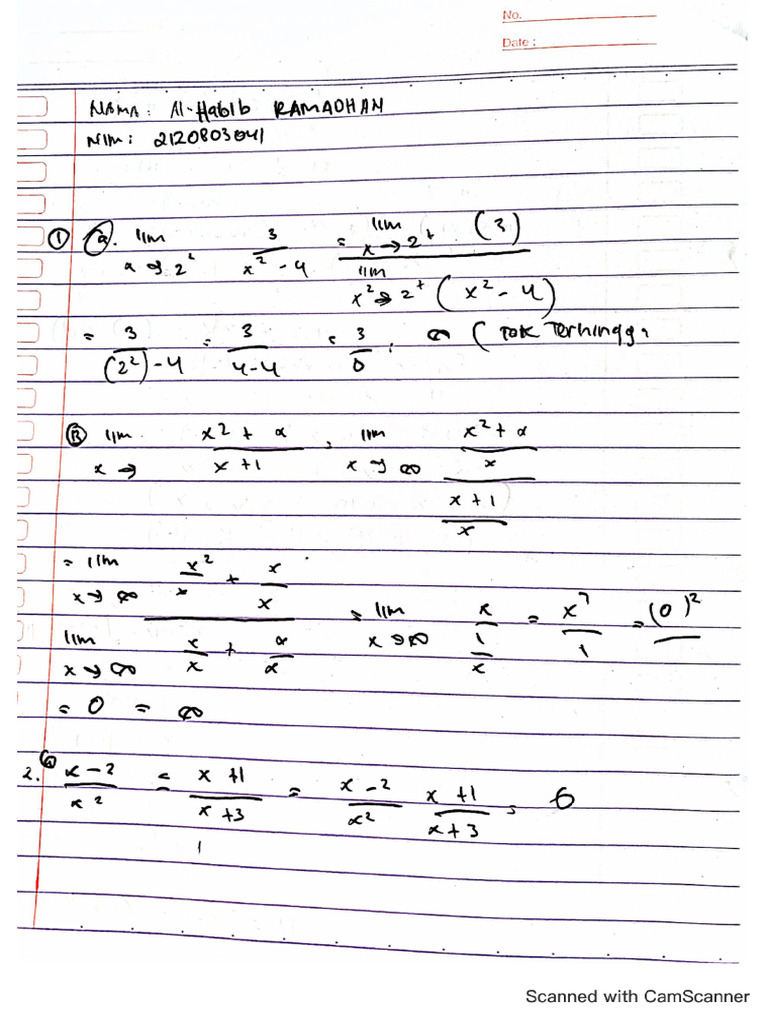 No.
Date :
NAMA : Al-Habib RAMADHAN
NIM : 2120803041
① a. lim 3 = lim x → 2⁺ (3)
x → 2⁺ x² - 4 lim x² → 2⁺ (x² - 4)
= 3/(2²)-4 = 3/4-4 = 3/0 = ∞ ( Tak Terhingga
Ⓑ lim x → x² + x / x + 1 , lim x → ∞ x² + x / x / x + 1 / x
= lim x → ∞ x²/x + x/x
lim x → ∞ x/x + x/x = lim x → ∞ x/1/x = x²/1 = (0)²
= 0 = ∞
2. a x - 2 / x² = x + 1 / x + 3 = x - 2 / x² x + 1 / x + 3 = 6
Scanned with CamScanner